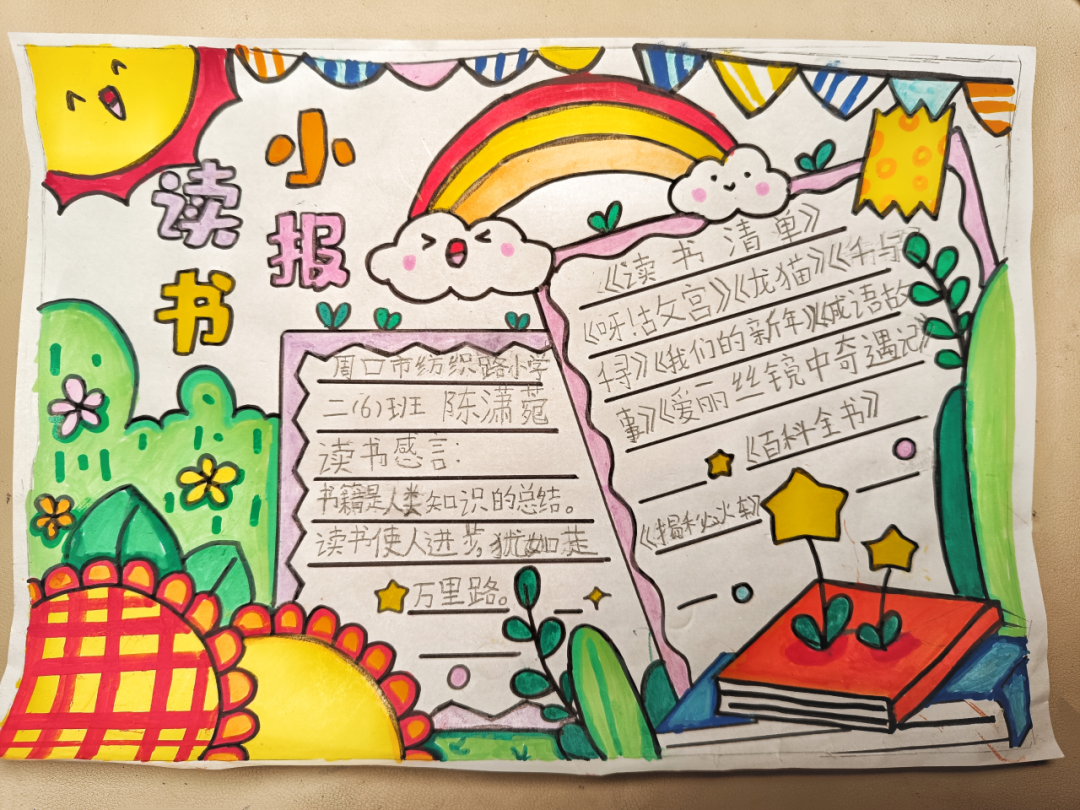 读书
小报
周口市纺织路小学
二(6)班 陈潇菀
读书感言:
书籍是人类知识的总结。
读书使人进步,犹如走
万里路。
《读书清单》
《呀!古文宫》《龙猫》《千与
千寻》《我们的新年》《成语故
事》《爱丽丝镜中奇遇记》
《百科全书》
《揭秘火车》